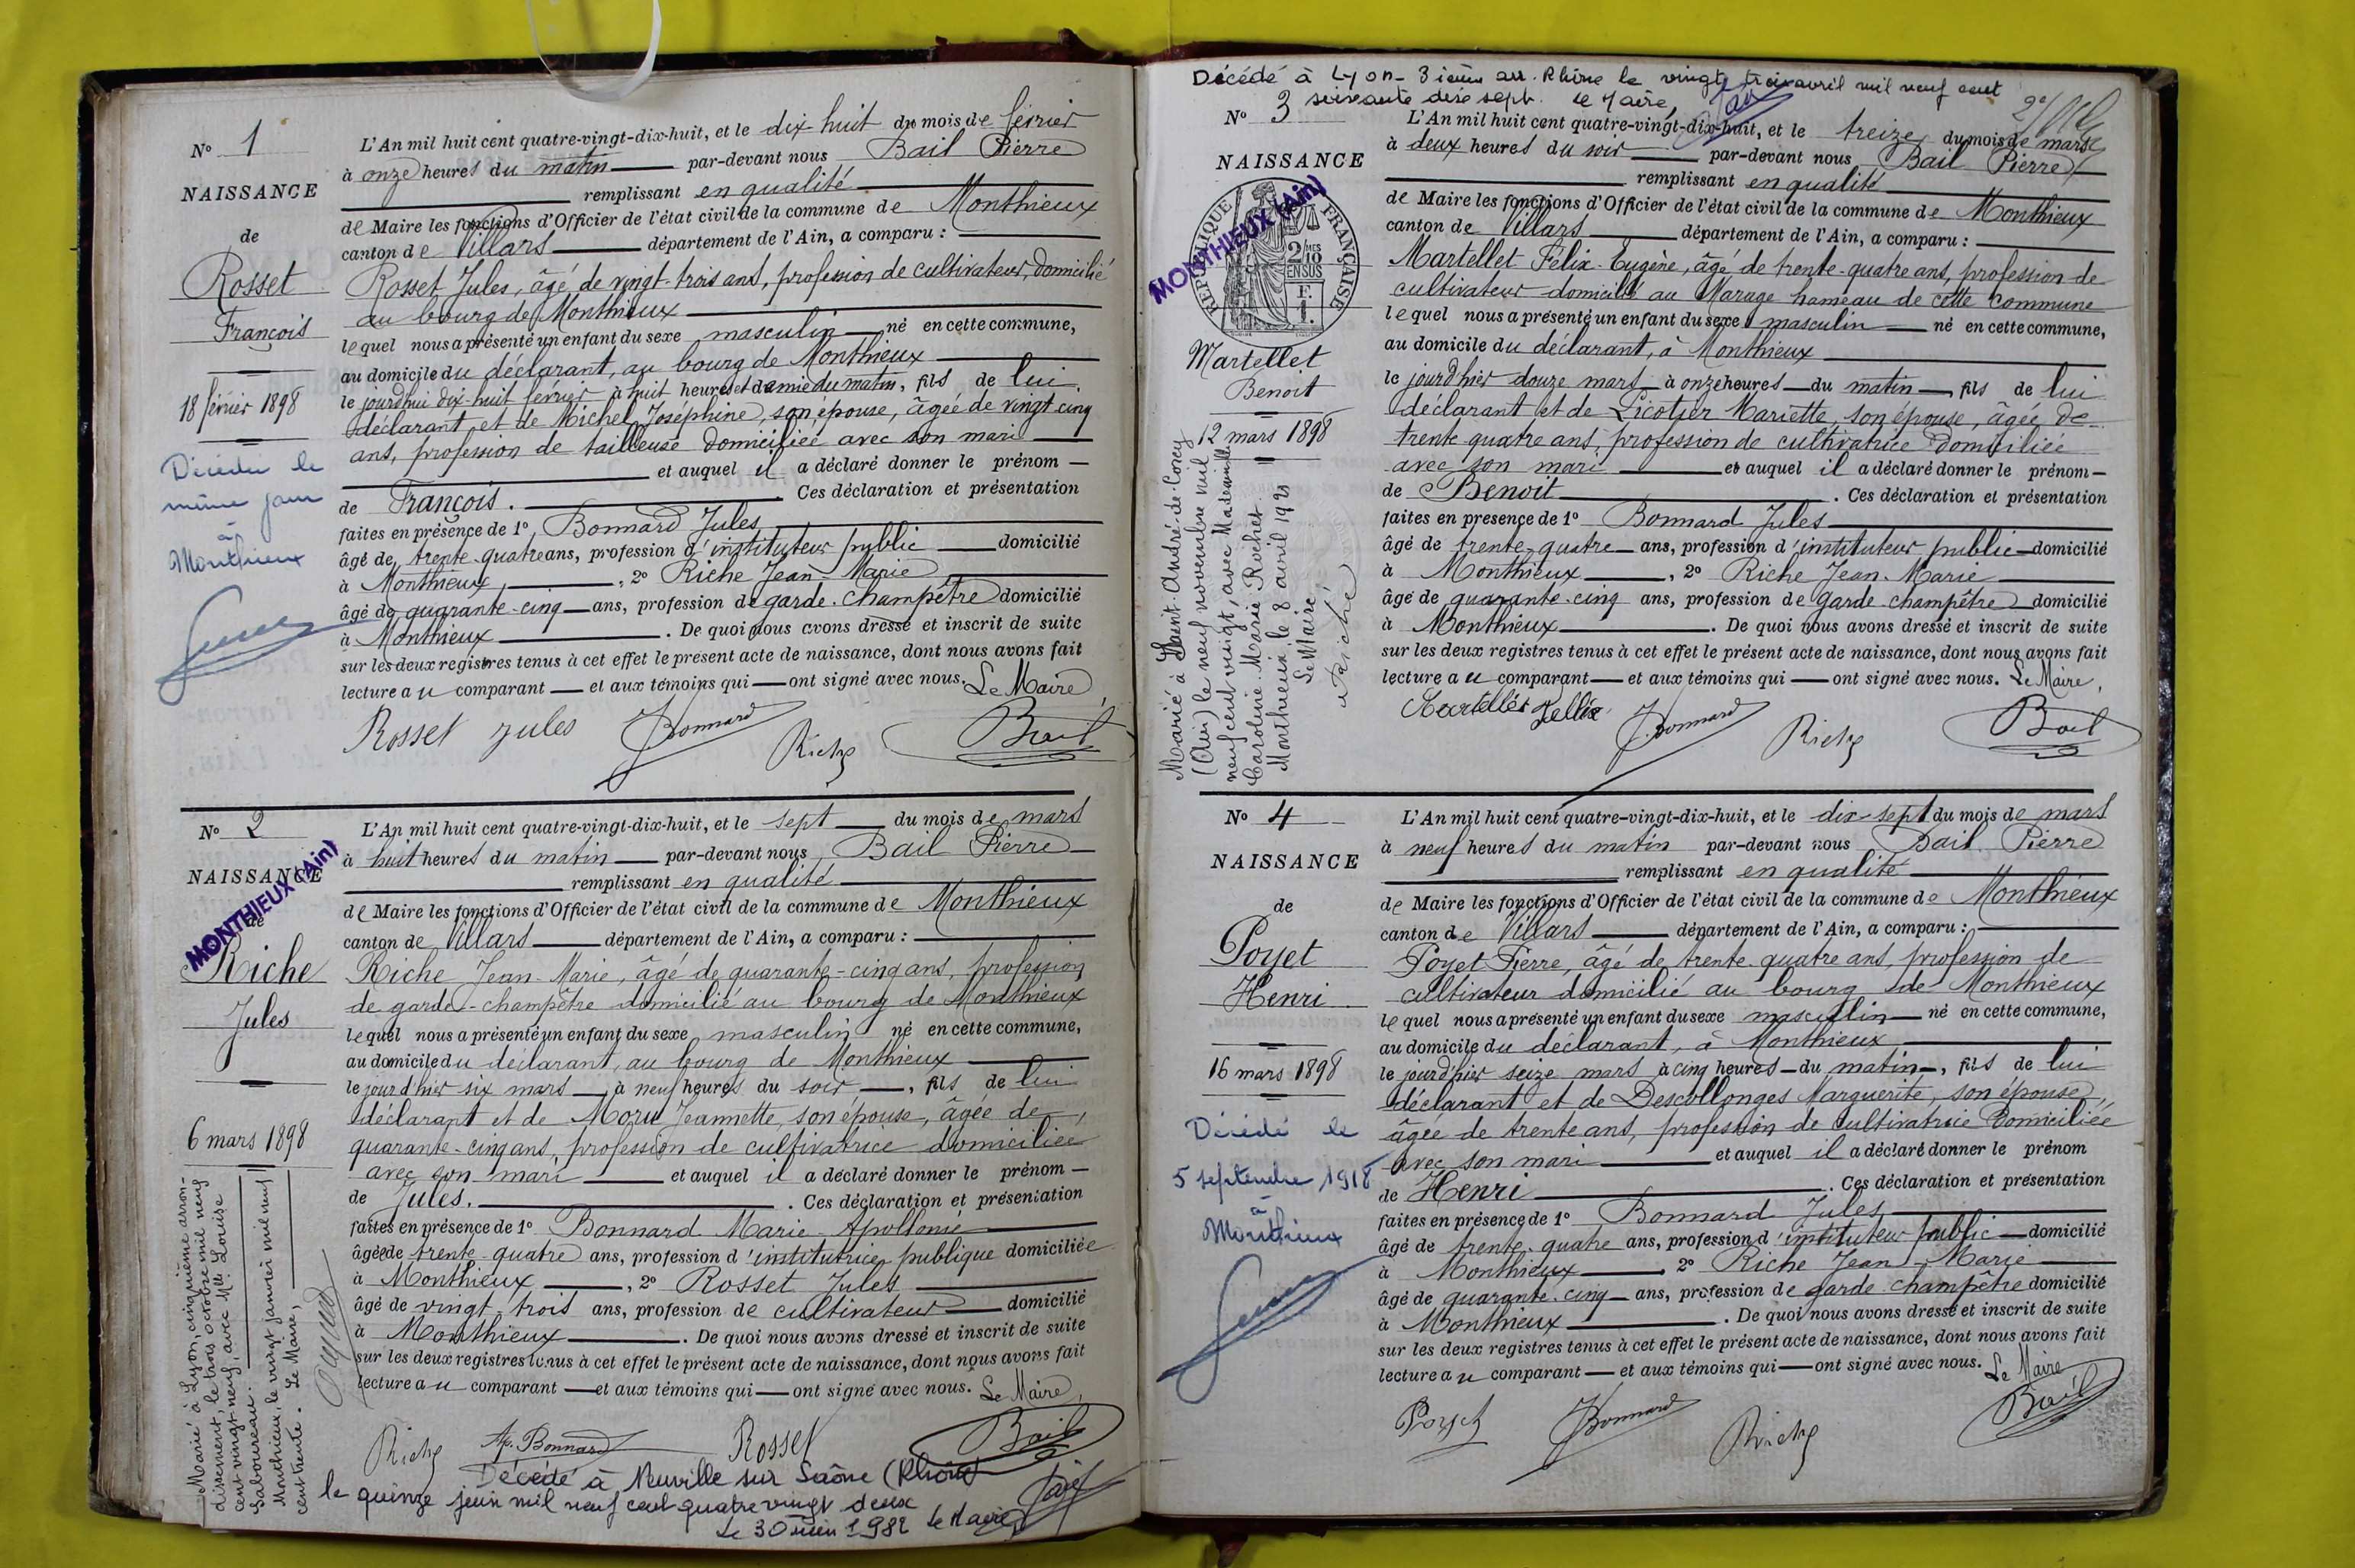 N° 1
NAISSANCE
de
Rosset
François
18 février 1898
Décédé le
même jour
à
Monthieux
L'An mil huit cent quatre-vingt-dix-huit, et le dix-huit du mois de février
à onze heures du matin par-devant nous Bail Pierre
remplissant en qualité
de Maire les fonctions d'Officier de l'état civil de la commune de Monthieux
canton de Villars département de l'Ain, a comparu :
Rosset Jules, âgé de vingt-trois ans, profession de cultivateur, domicilié
au bourg de Monthieux
lequel nous a présenté un enfant du sexe masculin né en cette commune,
au domicile du déclarant, au bourg de Monthieux
le jourd'hui dix-huit février à huit heures et demie du matin, fils de lui
déclarant et de Michel Joséphine, son épouse, âgée de vingt cinq
ans, profession de tailleuse domiciliée avec son mari
et auquel il a déclaré donner le prénom
de François. Ces déclaration et présentation
faites en présence de 1° Bonnard Jules
âgé de trente-quatre ans, profession d'instituteur public domicilié
à Monthieux, 2° Riche Jean-Marie
âgé de quarante-cinq ans, profession de garde-champêtre domicilié
à Monthieux. De quoi nous avons dressé et inscrit de suite
sur les deux registres tenus à cet effet le présent acte de naissance, dont nous avons fait
lecture au comparant et aux témoins qui ont signé avec nous. Le Maire,
Rosset Jules J. Bonnard Riche Bail
N° 2
NAISSANCE
de
MONTHIEUX (Ain)
Riche
Jules
6 mars 1898
Marié à Lyon, cinquième arron-
dissement, le trois octobre mil neuf
cent vingt-neuf, avec Mlle Louise
Saboureau.
Monthieux, le vingt janvier mil neuf
cent trente. Le Maire,
L'An mil huit cent quatre-vingt-dix-huit, et le sept du mois de mars
à huit heures du matin par-devant nous Bail Pierre
remplissant en qualité
de Maire les fonctions d'Officier de l'état civil de la commune de Monthieux
canton de Villars département de l'Ain, a comparu :
Riche Jean-Marie, âgé de quarante-cinq ans, profession
de garde-champêtre domicilié au bourg de Monthieux
lequel nous a présenté un enfant du sexe masculin né en cette commune,
au domicile du déclarant, au bourg de Monthieux
le jourd'hier six mars à neuf heures du soir, fils de lui
déclarant et de Jeannette, son épouse, âgée de
quarante-cinq ans, profession de cultivatrice domiciliée
avec son mari et auquel il a déclaré donner le prénom
de Jules. Ces déclaration et présentation
faites en présence de 1° Bonnard Marie-Apollonie
âgée de trente-quatre ans, profession d'institutrice publique domiciliée
à Monthieux, 2° Rosset Jules
âgé de vingt-trois ans, profession de cultivateur domicilié
à Monthieux. De quoi nous avons dressé et inscrit de suite
sur les deux registres tenus à cet effet le présent acte de naissance, dont nous avons fait
lecture au comparant et aux témoins qui ont signé avec nous. Le Maire,
Riche Ap. Bonnard Rosset Bail
Décédé à Neuville sur Saône (Rhône)
le quinze juin mil neuf cent quatre vingt deux
Le 30 juin 1982 Le Maire
Décédé à Lyon - 3ième arr. Rhône le vingt trois avril mil neuf cent
soixante dix sept. Le Maire,
N° 3
NAISSANCE
MONTHIEUX (Ain)
RÉPUBLIQUE FRANÇAISE
2/10 MES
EN SUS
F.
1.
Martellet
Benoit
12 mars 1898
Marié à Saint-André-de-Corcy
(Ain) le neuf novembre mil
neuf cent vingt, avec Mademoiselle
Caroline Marie Rochet.
Monthieux, le 8 avril 1921
Le Maire
L'An mil huit cent quatre-vingt-dix-huit, et le treize du mois de mars
à deux heures du soir par-devant nous Bail Pierre
remplissant en qualité
de Maire les fonctions d'Officier de l'état civil de la commune de Monthieux
canton de Villars département de l'Ain, a comparu :
Martellet Félix-Eugène, âgé de trente-quatre ans, profession de
cultivateur domicilié au Marage hameau de cette commune
lequel nous a présenté un enfant du sexe masculin né en cette commune,
au domicile du déclarant, à Monthieux
le jourd'hier douze mars à onze heures du matin, fils de lui
déclarant et de Licotier Mariette, son épouse, âgée de
trente quatre ans, profession de cultivatrice domiciliée
avec son mari et auquel il a déclaré donner le prénom
de Benoit. Ces déclaration et présentation
faites en présence de 1° Bonnard Jules
âgé de trente-quatre ans, profession d'instituteur public domicilié
à Monthieux, 2° Riche Jean-Marie
âgé de quarante-cinq ans, profession de garde-champêtre domicilié
à Monthieux. De quoi nous avons dressé et inscrit de suite
sur les deux registres tenus à cet effet le présent acte de naissance, dont nous avons fait
lecture au comparant et aux témoins qui ont signé avec nous. Le Maire,
J. Bonnard Riche Bail
N° 4
NAISSANCE
de
Poyet
Henri
16 mars 1898
Décédé le
5 septembre 1918
à
Monthieux
L'An mil huit cent quatre-vingt-dix-huit, et le dix-sept du mois de mars
à neuf heures du matin par-devant nous Bail Pierre
remplissant en qualité
de Maire les fonctions d'Officier de l'état civil de la commune de Monthieux
canton de Villars département de l'Ain, a comparu :
Poyet Pierre, âgé de trente-quatre ans, profession de
cultivateur domicilié au bourg de Monthieux
lequel nous a présenté un enfant du sexe masculin né en cette commune,
au domicile du déclarant, à Monthieux
le jourd'hier seize mars à cinq heures du matin, fils de lui
déclarant et de Descollonges Marguerite, son épouse,
âgée de trente ans, profession de cultivatrice domiciliée
avec son mari et auquel il a déclaré donner le prénom
de Henri. Ces déclaration et présentation
faites en présence de 1° Bonnard Jules
âgé de trente-quatre ans, profession d'instituteur public domicilié
à Monthieux, 2° Riche Jean-Marie
âgé de quarante-cinq ans, profession de garde-champêtre domicilié
à Monthieux. De quoi nous avons dressé et inscrit de suite
sur les deux registres tenus à cet effet le présent acte de naissance, dont nous avons fait
lecture au comparant et aux témoins qui ont signé avec nous. Le Maire
J. Bonnard Riche Bail